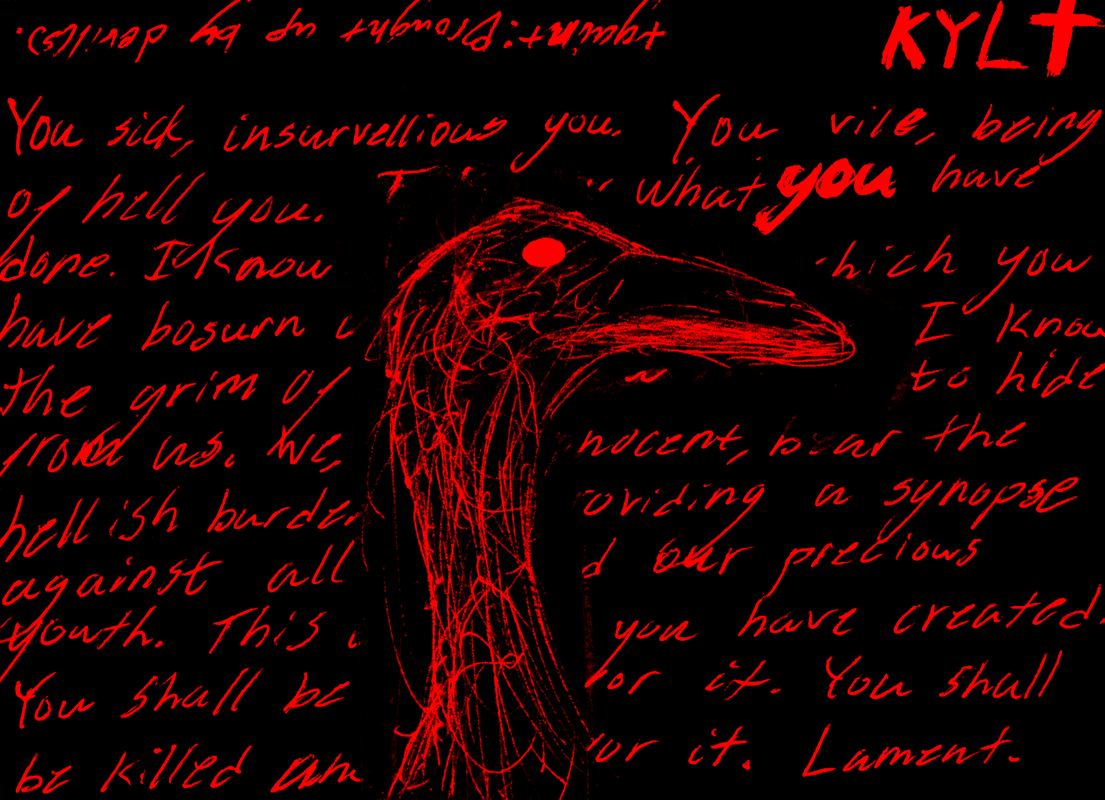 Brought up by devil(s).
KYLT
You sick, insurvellious you. You vile, being
of hell you. What you have
done. I know which you
have bosurn I know
the grim of to hide
from us. We, innocent, bear the
hellish burden providing a synopse
against all our precious
youth. This you have created.
You shall be for it. You shall
be killed for it. Lament.